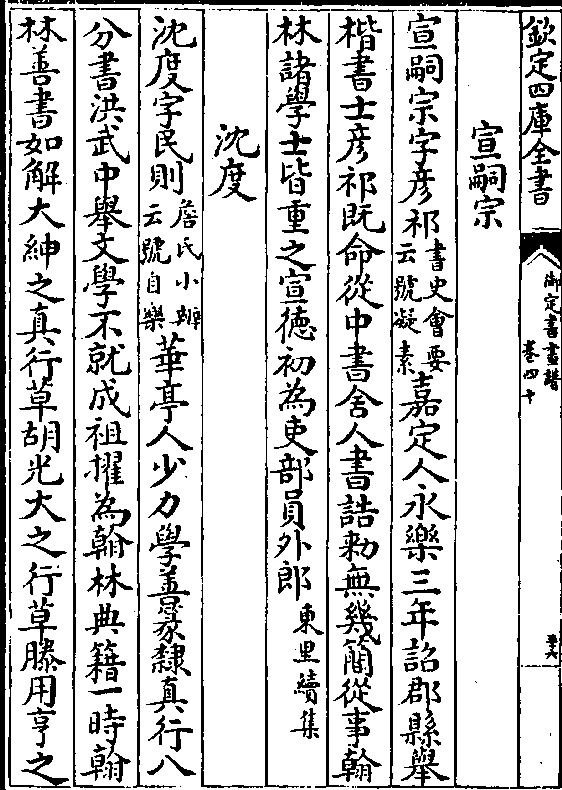 欽定四庫全書
御定書畫譜
卷四十
宣嗣宗
宣嗣宗字彥祁書史會要云號凝素嘉定人永樂三年詔郡縣舉
楷書士彥祁既命從中書舍人書誥勅無幾簡從事翰
林諸學士皆重之宣德初為吏部員外郎東里續集
沈度
沈度字民則詹氏小辨云號自樂華亭人少力學善篆隸真行八
分書洪武中舉文學不就成祖擢為翰林典籍一時翰
林善書如解大紳之真行草胡光大之行草滕用亨之